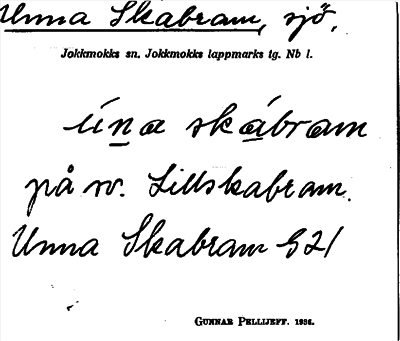 Unna Skabram, sjö,
Jokkmokks sn. Jokkmokks lappmarks tg. Nb l.
úna skábram
på sv. Lillskabram.
Unna Skabram G21
GUNNAR PELLIJEFF. 1936.